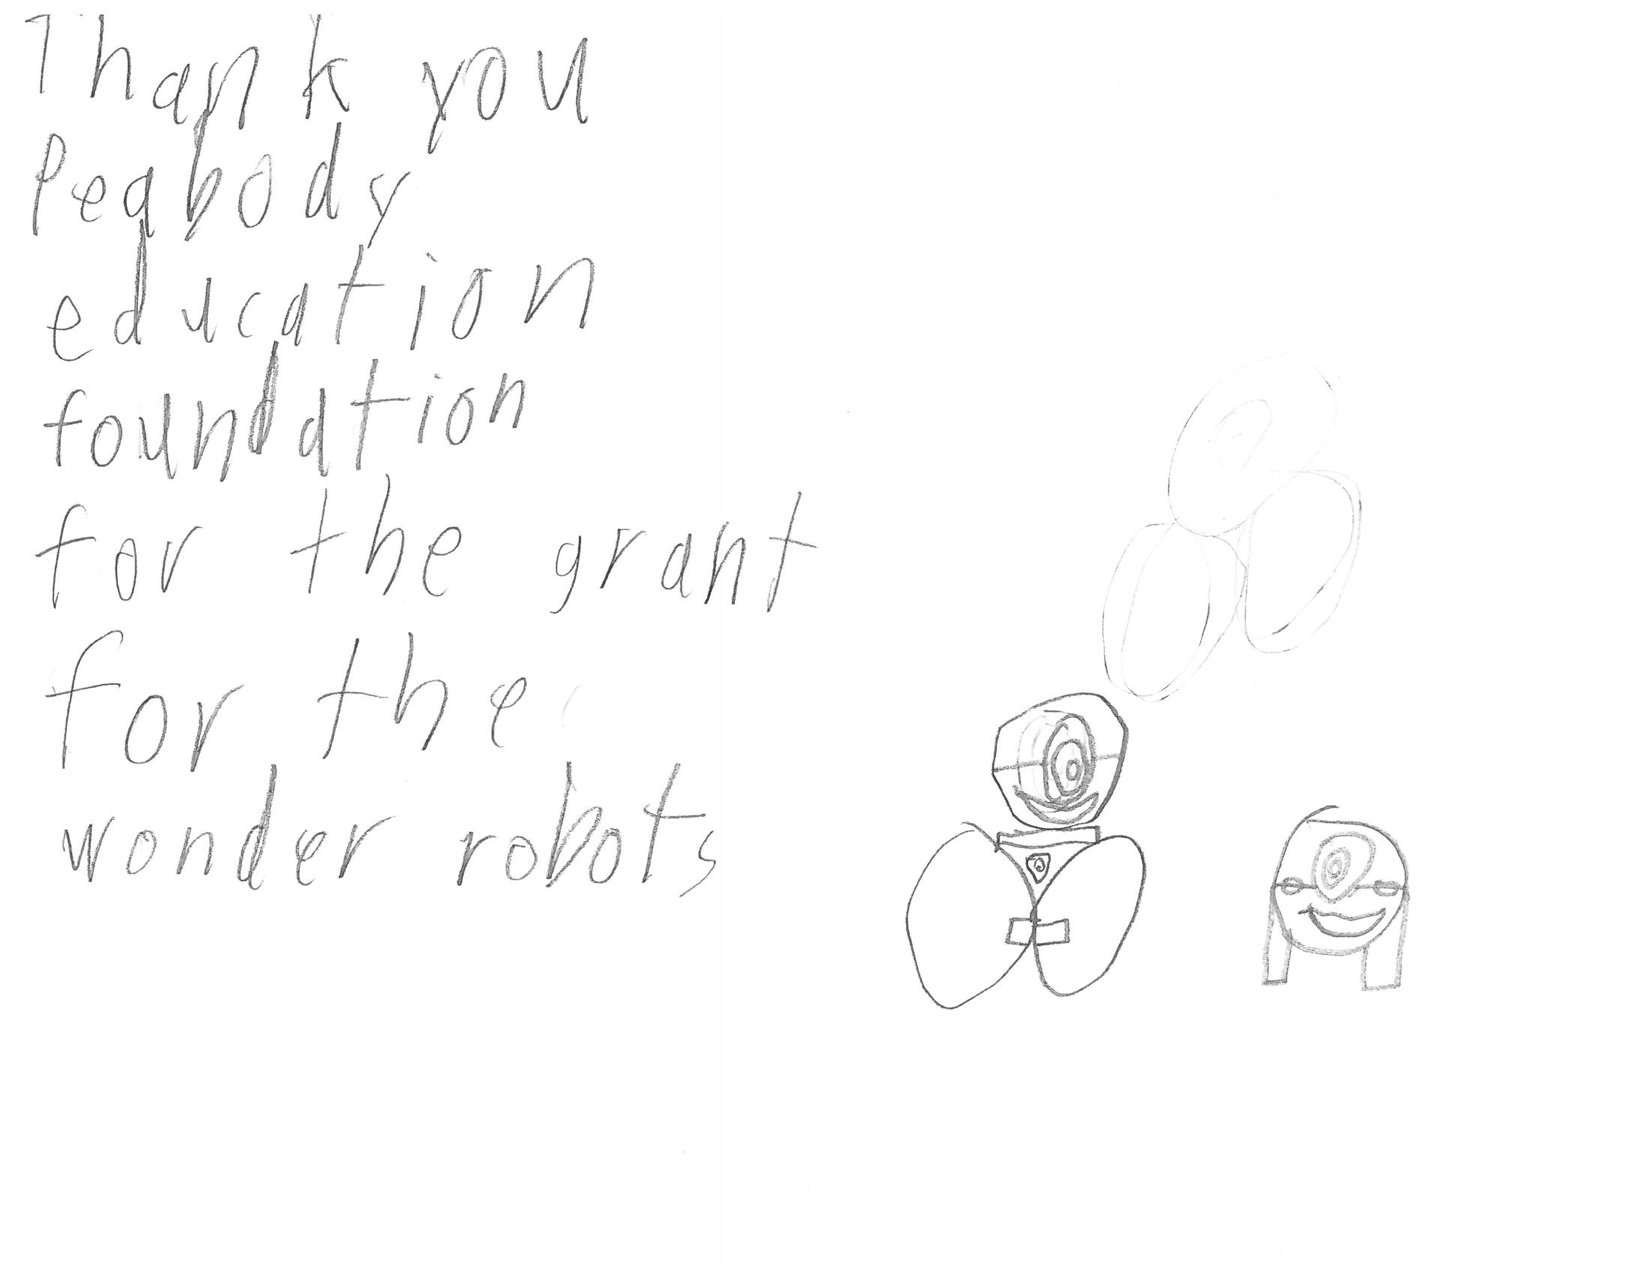 Thank you
Peabody
education
foundation
for the grant
for the
wonder robots